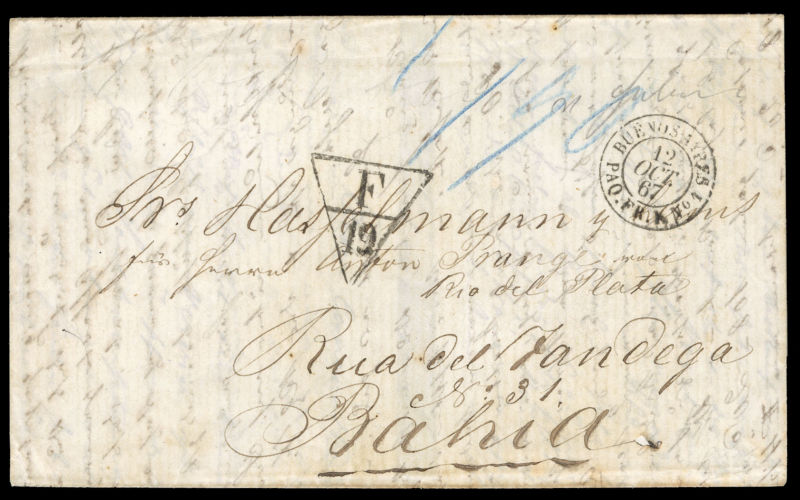 190
BUENOS AYRES
12
OCT.
67
PAQ. FR. K No 1
F
19
Srs Hasselmann y
für Herrn Anton Prange von
Rio del Plata
Rua del Fandega
No 31.
Bahia